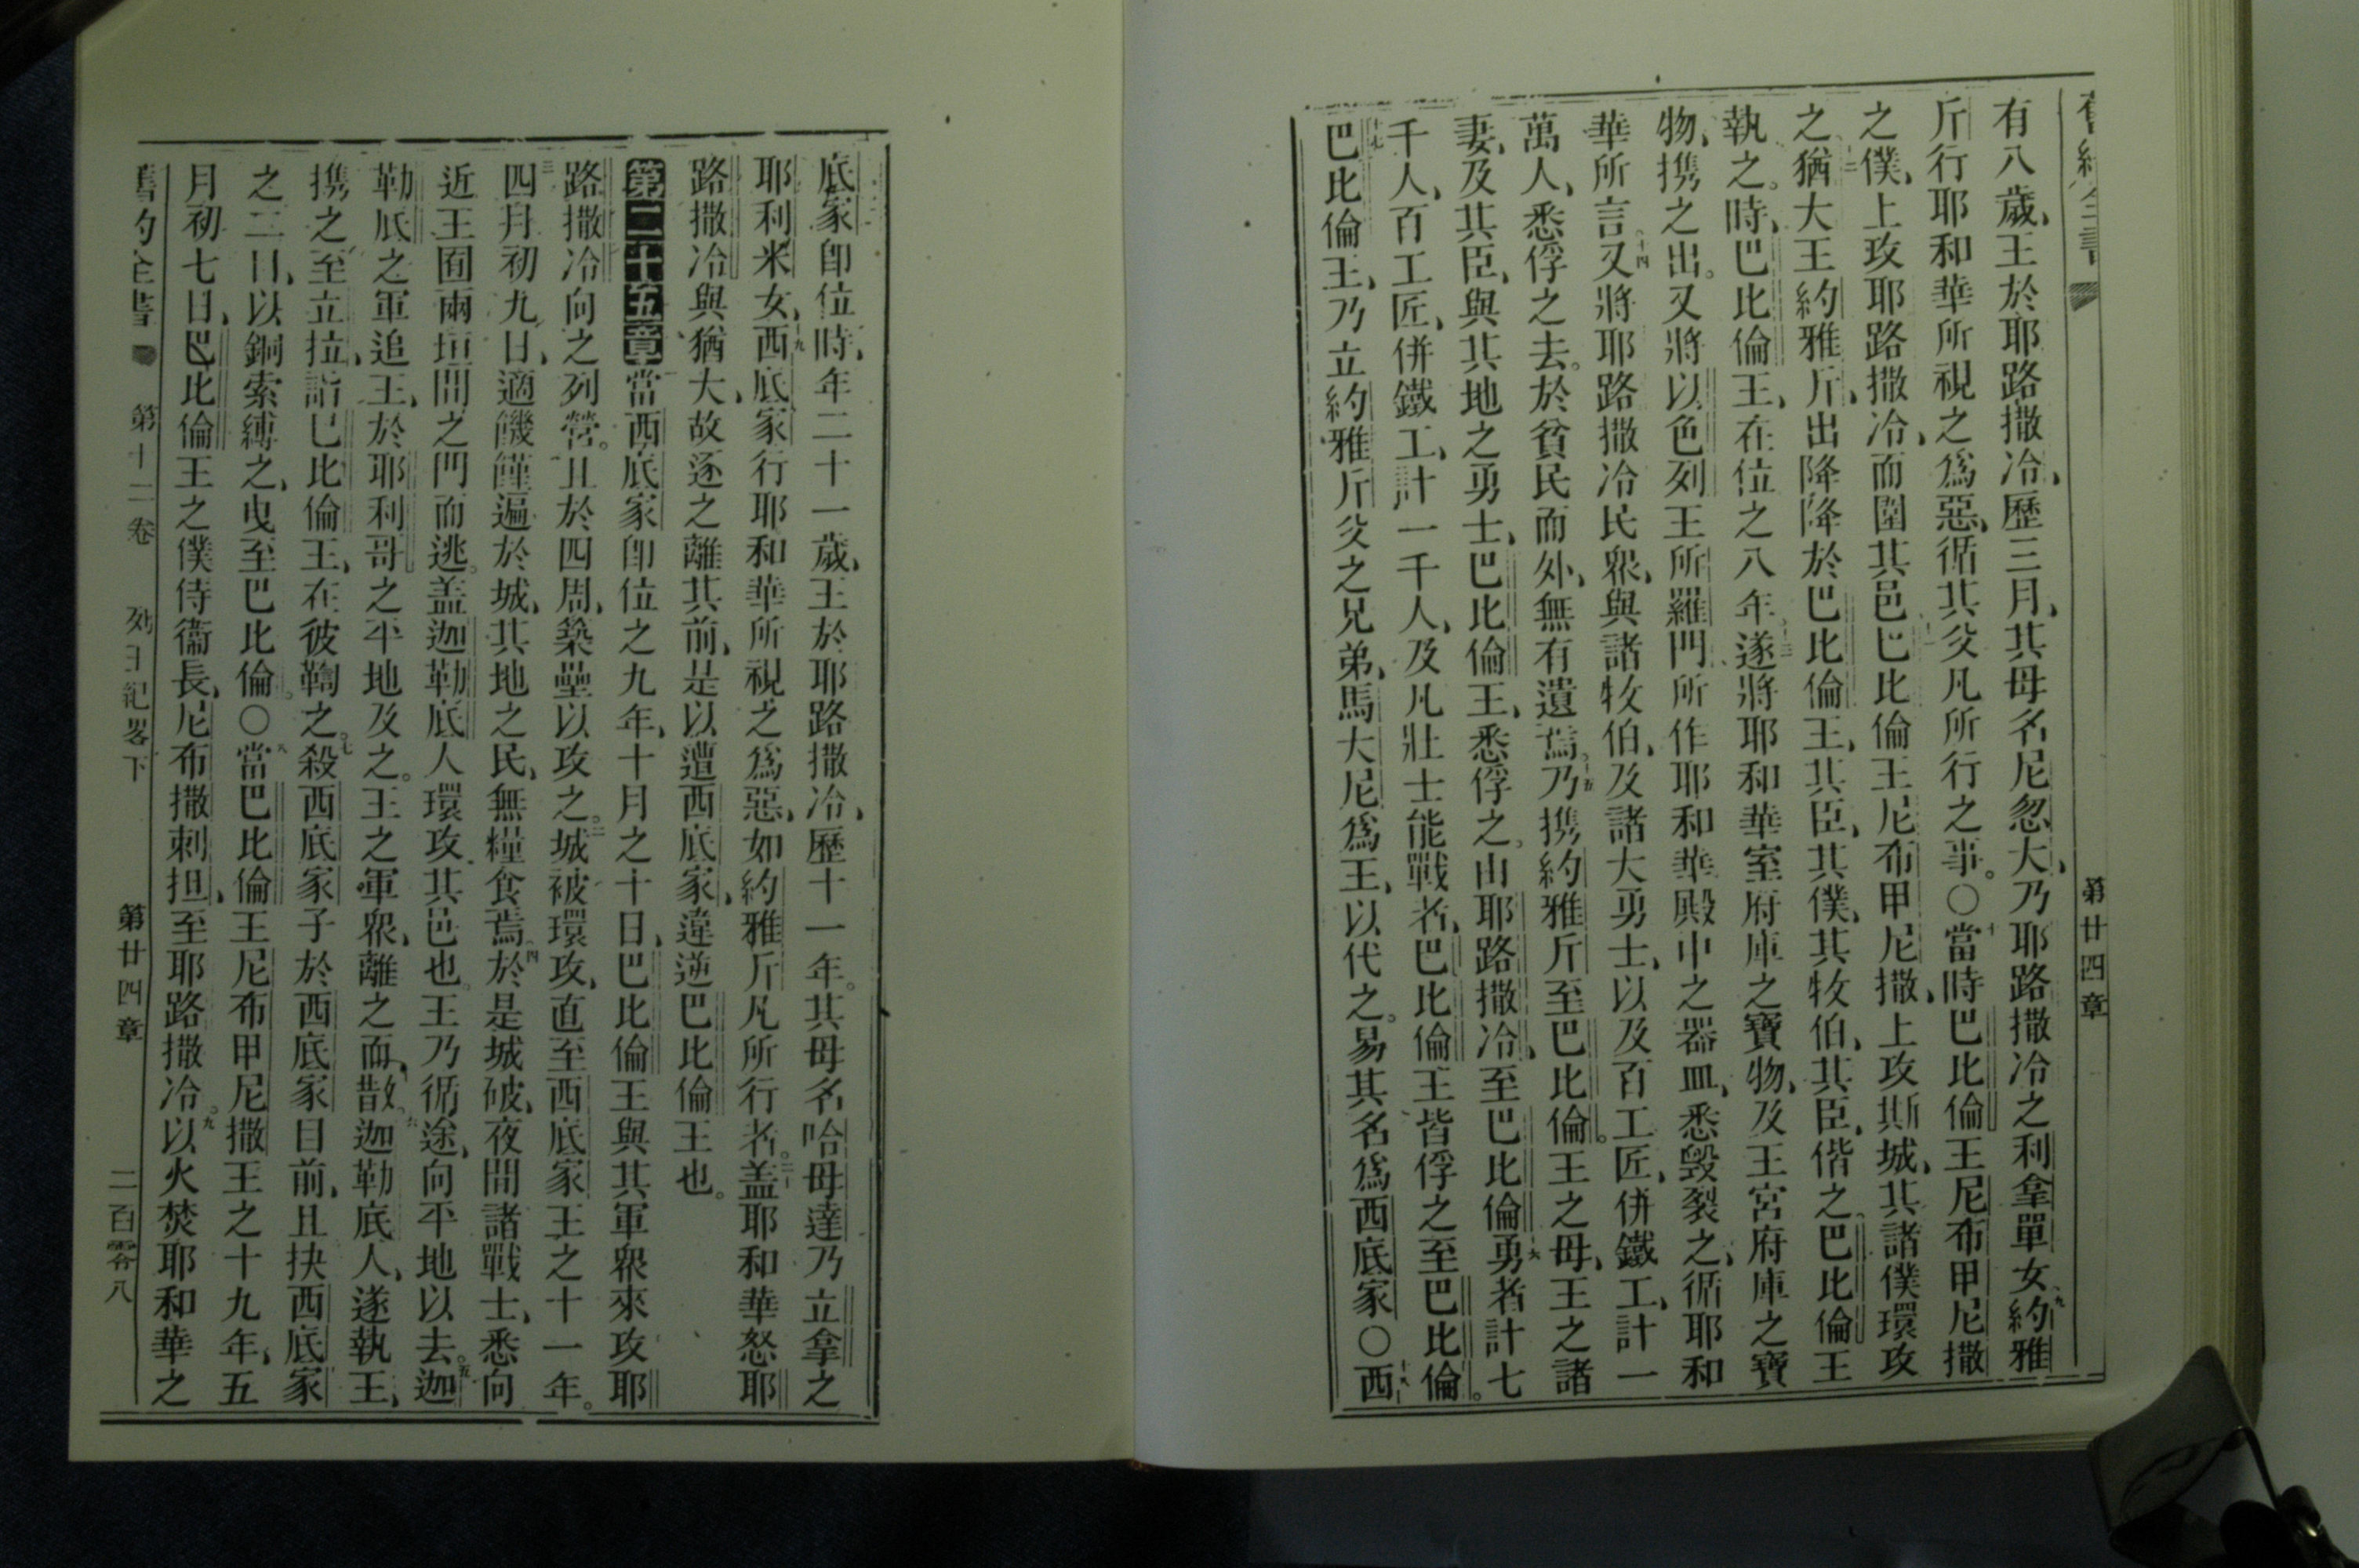 第廿四章
有八歲、王於耶路撒冷、歷三月、其母名尼忽大、乃耶路撒冷之利拿單女、九約雅
斤行耶和華所視之爲惡、循其父凡所行之事。〇十當時巴比倫王尼布甲尼撒
之僕、上攻耶路撒冷、而圍其邑十一巴比倫王尼布甲尼撒、上攻斯城、其諸僕環攻
之。十二猶大王約雅斤、出降降於巴比倫王、其臣、其僕、其牧伯、其臣、偕之。巴比倫王
執之。時、巴比倫王、在位之八年。十三遂將耶和華室府庫之寶物、及王宮府庫之寶
物、携之出。又將以色列王所羅門、所作耶和華殿中之器皿、悉毀裂之、循耶和
華所言十四又將耶路撒冷民衆、與諸牧伯、及諸大勇士、以及百工匠、併鐵工、計一
萬人、悉俘之去。於貧民而外、無有遺焉。十五乃携約雅斤至巴比倫。王之母、王之諸
妻、及其臣、與其地之勇士、巴比倫王、悉俘之。由耶路撒冷、至巴比倫十六勇者計七
千人、百工匠、併鐵工、計一千人、及凡壯士能戰者、巴比倫王皆俘之至巴比倫。
十七巴比倫王、乃立約雅斤父之兄弟、馬大尼爲王、以代之。易其名爲西底家〇十八西
底家卽位時、年二十一歲、王於耶路撒冷、歷十一年。其母名哈母達乃立拿之
耶利米女、十九西底家行耶和華所視之爲惡、如約雅斤凡所行者。二十蓋耶和華怒耶
路撒冷與猶大、故逐之離其前、是以遭西底家、違逆巴比倫王也。
第二十五章當西底家卽位之九年、十月之十日、巴比倫王與其軍衆來攻耶
路撒冷向之列營。且於四周、築壘以攻之。二城被環攻、直至西底家王之十一年。
三四月初九日、適饑饉遍於城、其地之民、無糧食焉。四於是城破、夜間諸戰士、悉向
近王囿兩垣間之門而逃。盖迦勒底人環攻其邑也。王乃循途、向平地以去。五迦
勒底之軍追王、於耶利哥之平地及之。王之軍衆、離之而散。六迦勒底人、遂執王、
携之至立拉、詣巴比倫王、在彼鞫之。七殺西底家子於西底家目前、且抉西底家
之二目、以銅索縛之、曳至巴比倫。〇八當巴比倫王尼布甲尼撒王之十九年、五
月初七日、巴比倫王之僕侍衞長、尼布撒刺担、至耶路撒冷。九以火焚耶和華之
舊約全書 第十二卷 列王紀畧下 第廿四章 二百零八